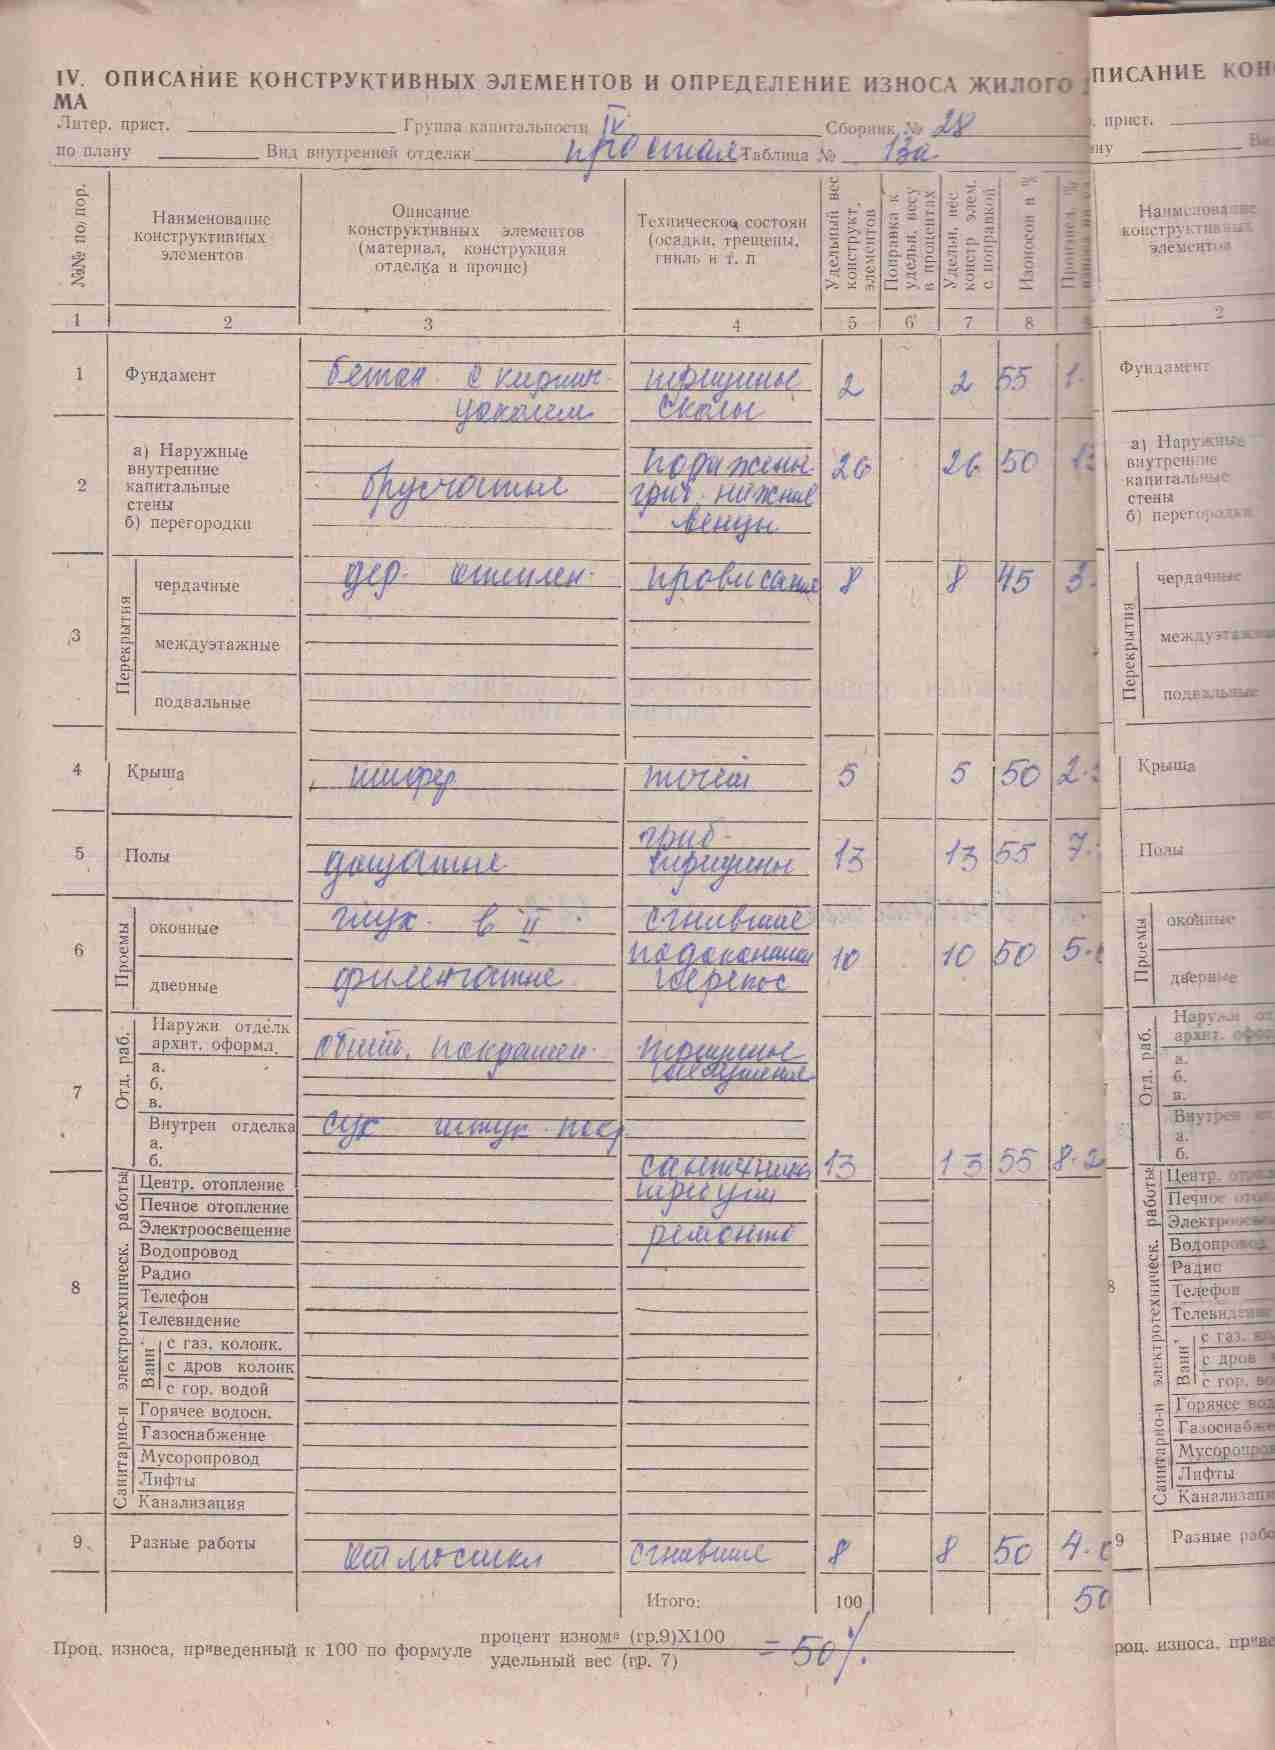 IV. ОПИСАНИЕ КОНСТРУКТИВНЫХ ЭЛЕМЕНТОВ И ОПРЕДЕЛЕНИЕ ИЗНОСА ЖИЛОГО
МА
Литер. прист. Группа капитальности IV Сборник № 28
по плану Вид внутренней отделки простая Таблица № 13а
№№ по пор.
Наименование
конструктивных
элементов
Описание
конструктивных элементов
(материал, конструкция
отделка и прочие)
Техническое состоян
(осадки, трещены,
гниль и т. п
Удельный вес
конструкт,
элементов
Поправка к
удельн, весу
в процентах
Удельн, вес
констр элем.
с поправкой
Изоносоп в %
1 2 3 4 5 6 7 8
1 Фундамент бетон с кирпич. трещины 2 2 55 1.
цоколем сколы
2
а) Наружные
внутренние
капитальные
стены
б) перегородки
брусчатые
поражены
гриб. нижние
венцы
26 26 50
3 Перекрытия
чердачные дер. утеплен. провисание 8 8 45 3.
междуэтажные
подвальные
4 Крыша шифер течи 5 5 50 2.
5 Полы дощатые
гриб.
трещины
13 13 55 7.
6 Проемы
оконные глух. в II
сгнившие
подоконники
дверные филенчатые перекос
10 10 50 5.
7 Отд. раб.
Наружн отделк
архит. оформл.
обшит, покрашен.
трещины
а.
б.
в.
Внутрен отделка сух штук. покр.
а.
б.
13 13 55 8.2
8 Санитарно-и электротехническ. работы
сантехника
требует
ремонта
Центр. отопление
Печное отопление
Электроосвещение
Водопровод
Радио
Телефон
Телевидение
Ванн
с газ. колонк.
с дров колонк
с гор. водой
Горячее водосн.
Газоснабжение
Мусоропровод
Лифты
Канализация
9 Разные работы сгнившие 8 8 50 4.
Итого: 100 50
Проц. износа, приведенный к 100 по формуле процент износа (гр.9)X100 = 50%.
удельный вес (гр. 7)
ПИСАНИЕ КОН
прист.
ну
Наименование
конструктивных
элементов
2
Фундамент
а) Наружные
внутренние
капитальные
стены
б) перегородки
Перекрытия
чердачные
междуэтажные
подвальные
Крыша
Полы
Проемы
оконные
дверные
Отд. раб.
Наружн от
архит. офо
а.
б.
в.
Внутрен
а.
б.
8
Санитарно-и электротехническ. работы
Центр.
Печное
Электроосве
Водопровод
Радио
Телефон
Телевидение
Ванн
с газ.
с дров
с гор.
Горячее вод
Газоснабже
Мусоропро
Лифты
Канализаци
9 Разные рабо
роц. износа, приве